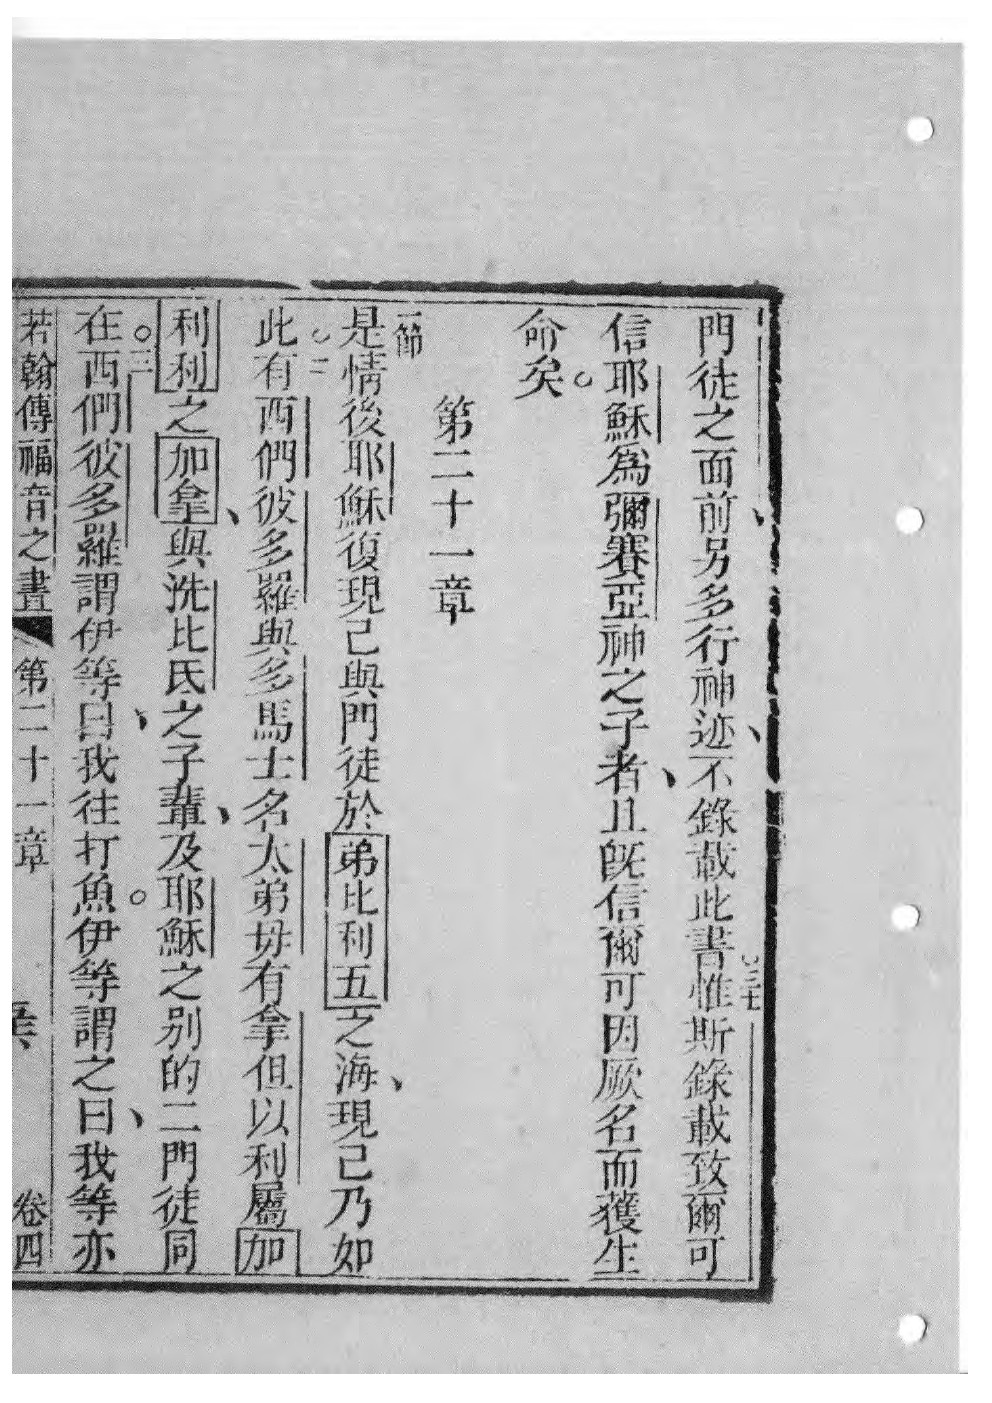 門徒之面前、另多行神迹、不錄載此書○三十一惟斯錄載致爾可
信耶穌爲彌賽亞神之子者、且旣信爾可因厥名而獲生
命矣。
第二十一章
一節是情後耶穌復現己與門徒於弟比利五之海、現己乃如
此○二有西們彼多羅與多馬士名太弟毋有拿但以利屬加
利利之加拿、與洗比氏之子輩、及耶穌之別的二門徒同
在○三西們彼多羅謂伊等曰、我往打魚。伊等謂之曰、我等亦
若翰傳福音之書 第二十一章 卷四